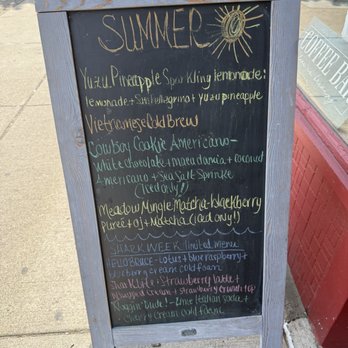 SUMMER
Yuzu Pineapple Sparkling lemonade:
lemonade + San pellegrino + yuzu pineapple
Vietnamese Cold Brew
Cowboy Cookie Americano-
White chocolate + macadamia + coconut
Americano + Sea Salt Sprinkle
(iced only!)
Meadow Mingle Matcha-blackberry
puree + oj + Matcha (iced only!)
SHARK WEEK limited menu
HELLO BRUCE - Lotus + blue raspberry +
cream cold foam
Shark Bite - Strawberry latte +
whipped cream + Strawberry crunch top
blue Italian soda +
cream cold foam
COFFEE BAR